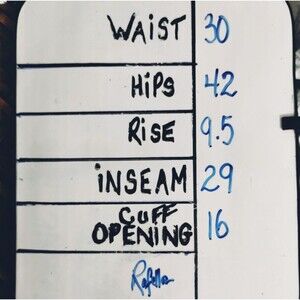 WAIST 30
HiPS 42
RiSE 9.5
iNSEAM 29
CUFF
OPENING 16